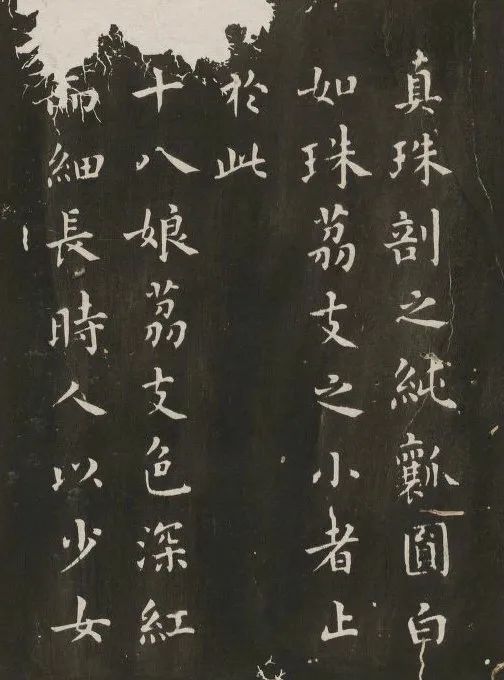 真珠剖之純瓤圓白
如珠茘支之小者止
於此
十八娘茘支色深紅
而細長時人以少女